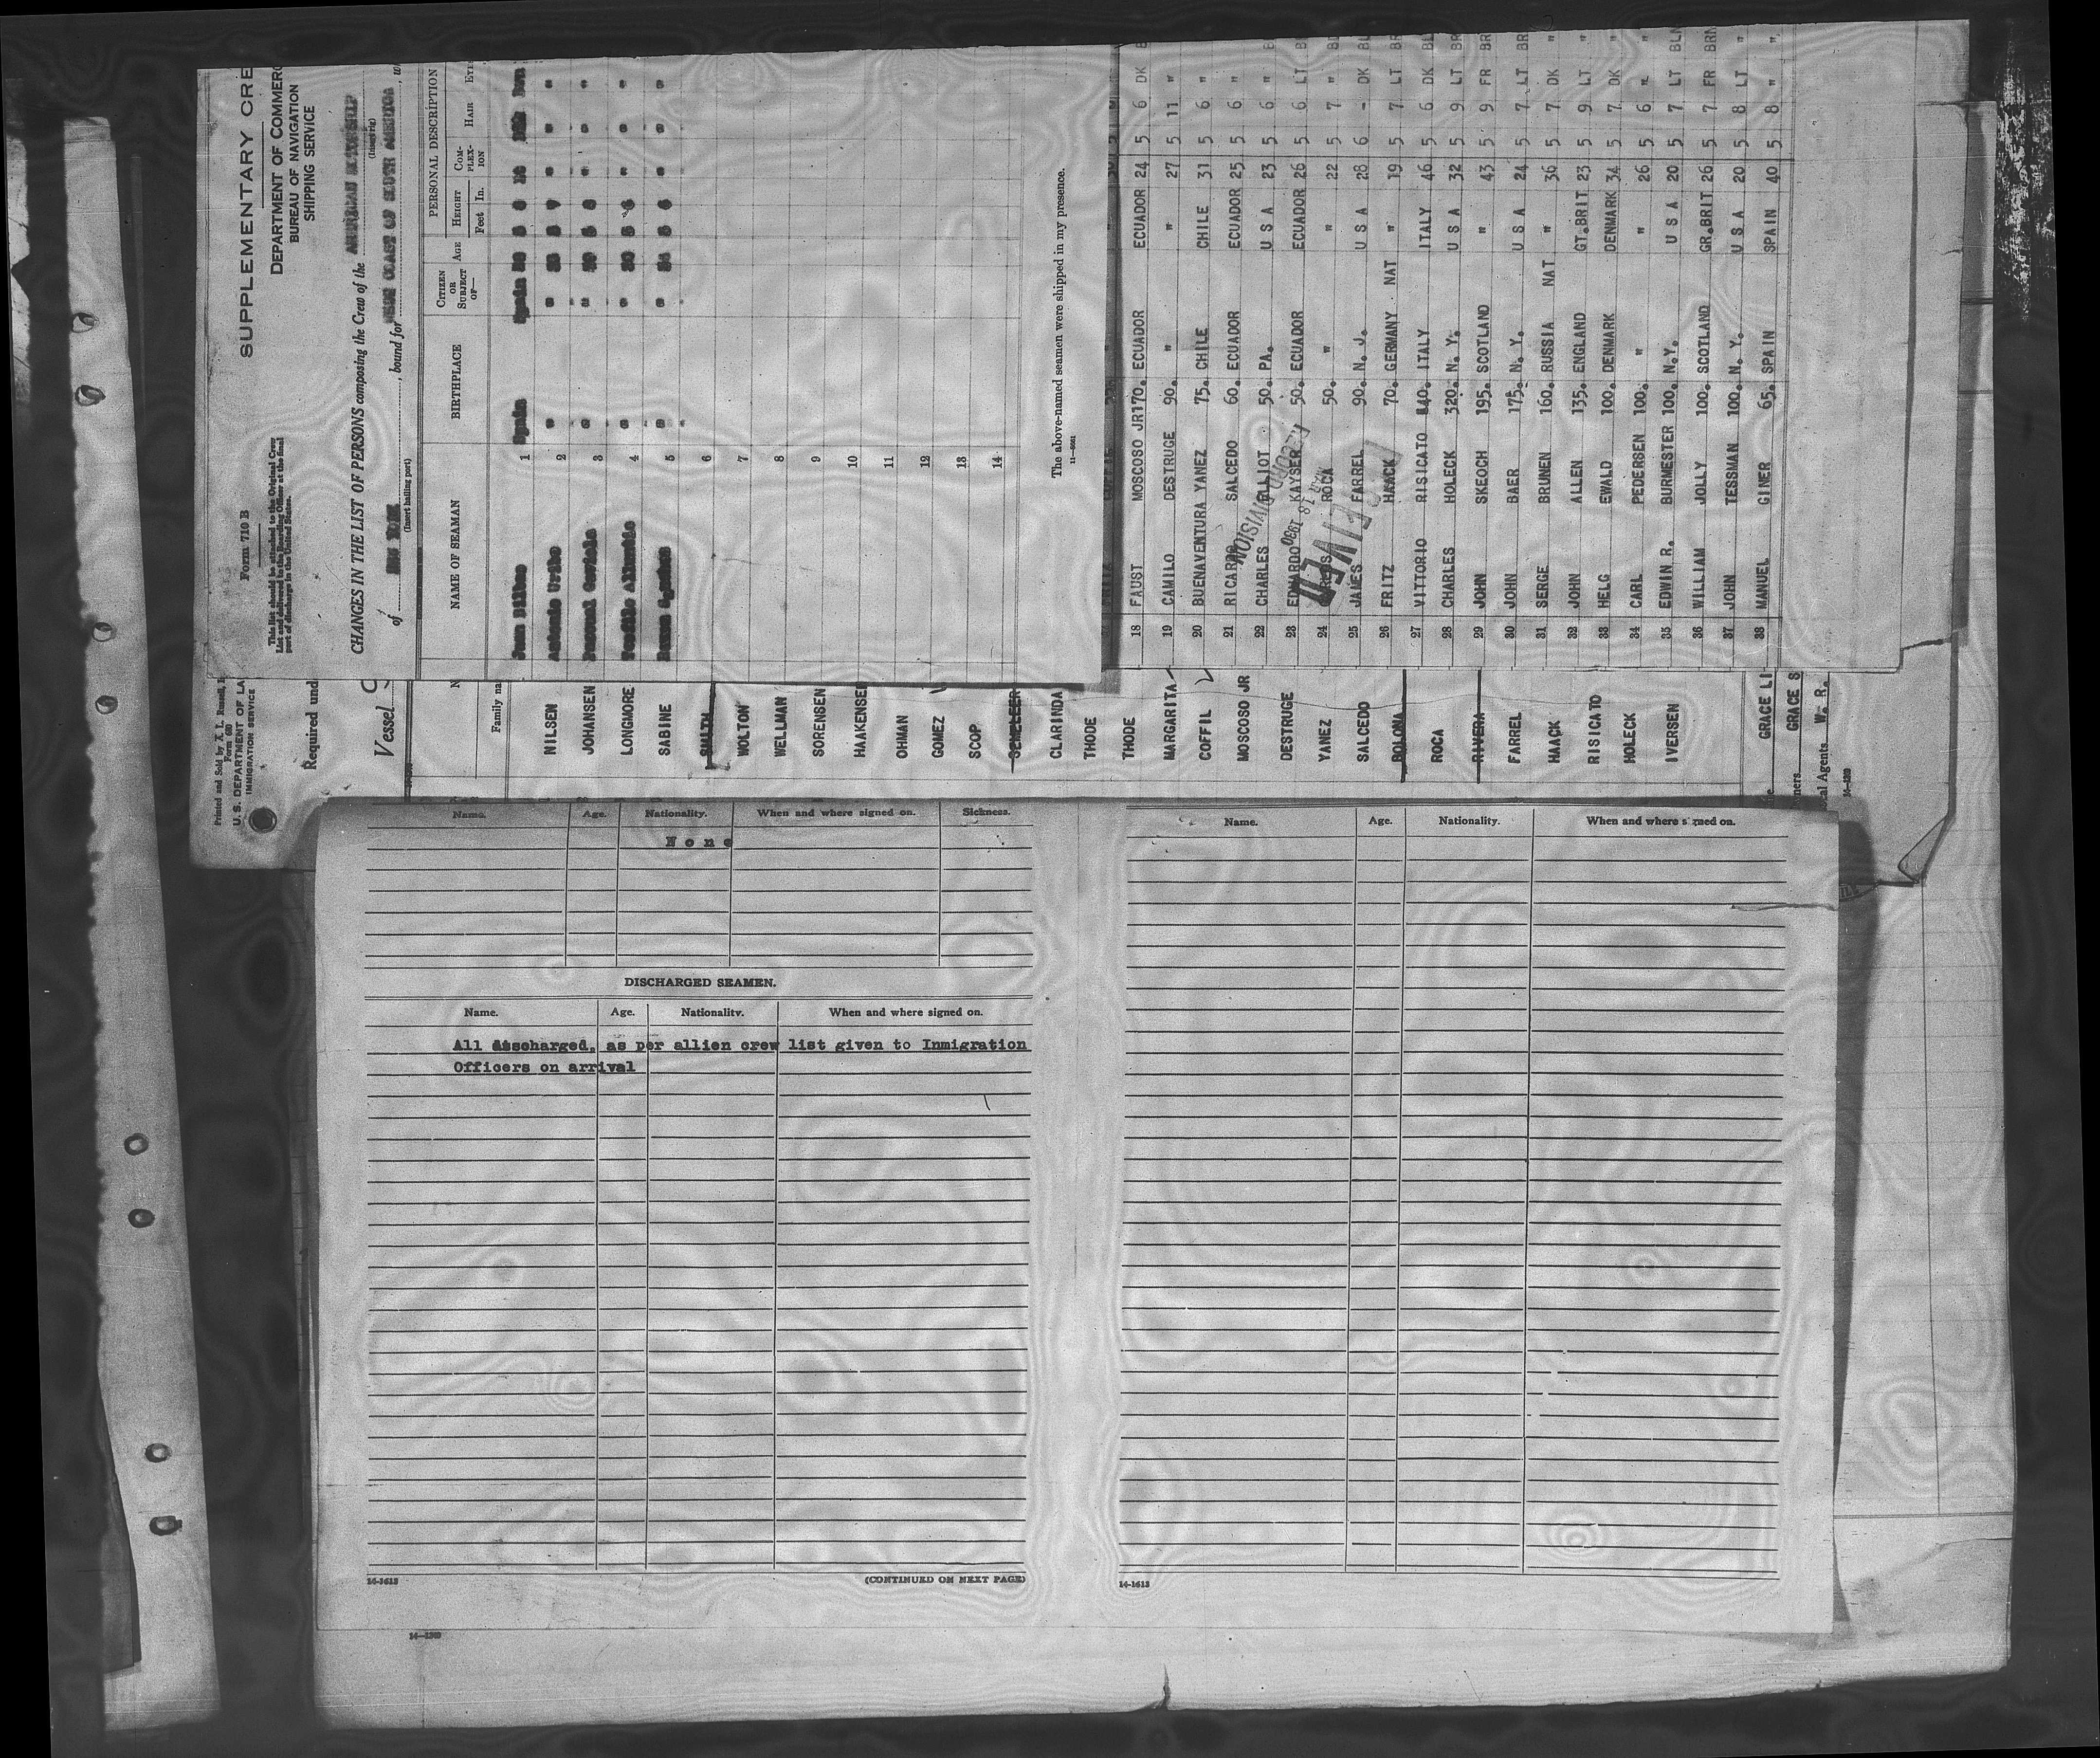 SUPPLEMENTARY CRE
Form 710 B
DEPARTMENT OF COMMERC
BUREAU OF NAVIGATION
SHIPPING SERVICE
This list should be attached to the Original Crew
List and delivered to the Boarding Officer at the final
port of discharge in the United States.
CHANGES IN THE LIST OF PERSONS composing the Crew of the AMERICAN MOTORSHIP
(Insert rig)
of NEW YORK, bound for WEST COAST OF SOUTH AMERICA, w
(Insert hailing port)
NAME OF SEAMAN BIRTHPLACE CITIZEN OR SUBJECT OF— AGE PERSONAL DESCRIPTION
HEIGHT Feet In. COMPLEX-ION HAIR EYE
Juan Bilbao 1 Spain Spain
Antonio Uribe 2 "
3 " "
4 " "
5 " "
6
7
8
9
10
11
12
13
14
The above-named seamen were shipped in my presence.
18 FAUST MOSCOSO JR 170. ECUADOR ECUADOR 24 5 6 DK B
19 CAMILO DESTRUGE 90. " " 27 5 11 "
20 BUENAVENTURA YANEZ 75. CHILE CHILE 31 5 6 "
21 RICARDO SALCEDO 60. ECUADOR ECUADOR 25 5 6 "
22 CHARLES ELLIOT 50. PA. U S A 23 5 6 " B
23 EDUARDO KAYSER 50. ECUADOR ECUADOR 26 5 6 LT B
24 ROCA 50. " " 22 5 7 " B
25 JAMES FARREL 90. N. J. U S A 28 6 - DK BL
26 FRITZ HAACK 70. GERMANY NAT " 19 5 7 LT BR
27 VITTORIO RISICATO 140. ITALY ITALY 46 5 6 DK BL
28 CHARLES HOLECK 320. N. Y. U S A 32 5 9 LT BR
29 JOHN SKEOCH 195. SCOTLAND " 43 5 9 FR BR
30 JOHN BAER 175. N. Y. U S A 24 5 7 LT BR
31 SERGE BRUNEN 160. RUSSIA NAT " 36 5 7 DK "
32 JOHN ALLEN 135. ENGLAND GT.BRIT 23 5 9 LT "
33 HELG EWALD 100. DENMARK DENMARK 34 5 7 DK "
34 CARL PEDERSEN 100. " " 26 5 6 " "
35 EDWIN R. BURMESTER 100. N.Y. U S A 20 5 7 LT BLN
36 WILLIAM JOLLY 100. SCOTLAND GR.BRIT 26 5 7 FR BRN
37 JOHN TESSMAN 100. N. Y. U S A 20 5 8 LT "
38 MANUEL GINER 65. SPAIN SPAIN 40 5 8 " "
RECORD DIVISION
18 1930
RECEIVED
Printed and Sold by X. L. Russell,
Form 680
U. S. DEPARTMENT OF LA
IMMIGRATION SERVICE
Required und
Vessel
N
Family na
NILSEN
JOHANSEN
LONGMORE
SABINE
SMITH
WOLTON
WELLMAN
SORENSEN
HAAKENSEN
OHMAN
GOMEZ
SCOP
CLARINDA
THODE
THODE
MARGARITA
COFFIL
MOSCOSO JR
DESTRUGE
YANEZ
SALCEDO
BOLONA
ROCA
RIVERA
FARREL
HAACK
RISICATO
HOLECK
IVERSEN
GRACE LI
ners GRACE S
cal Agents W. R.
Name. Age. Nationality. When and where signed on. Sickness.
None
DISCHARGED SEAMEN.
Name. Age. Nationality. When and where signed on.
All discharged, as per allien crew list given to Inmigration
Officers on arrival
14-1613
(CONTINUED ON NEXT PAGE)
Name. Age. Nationality. When and where signed on.
14-1613